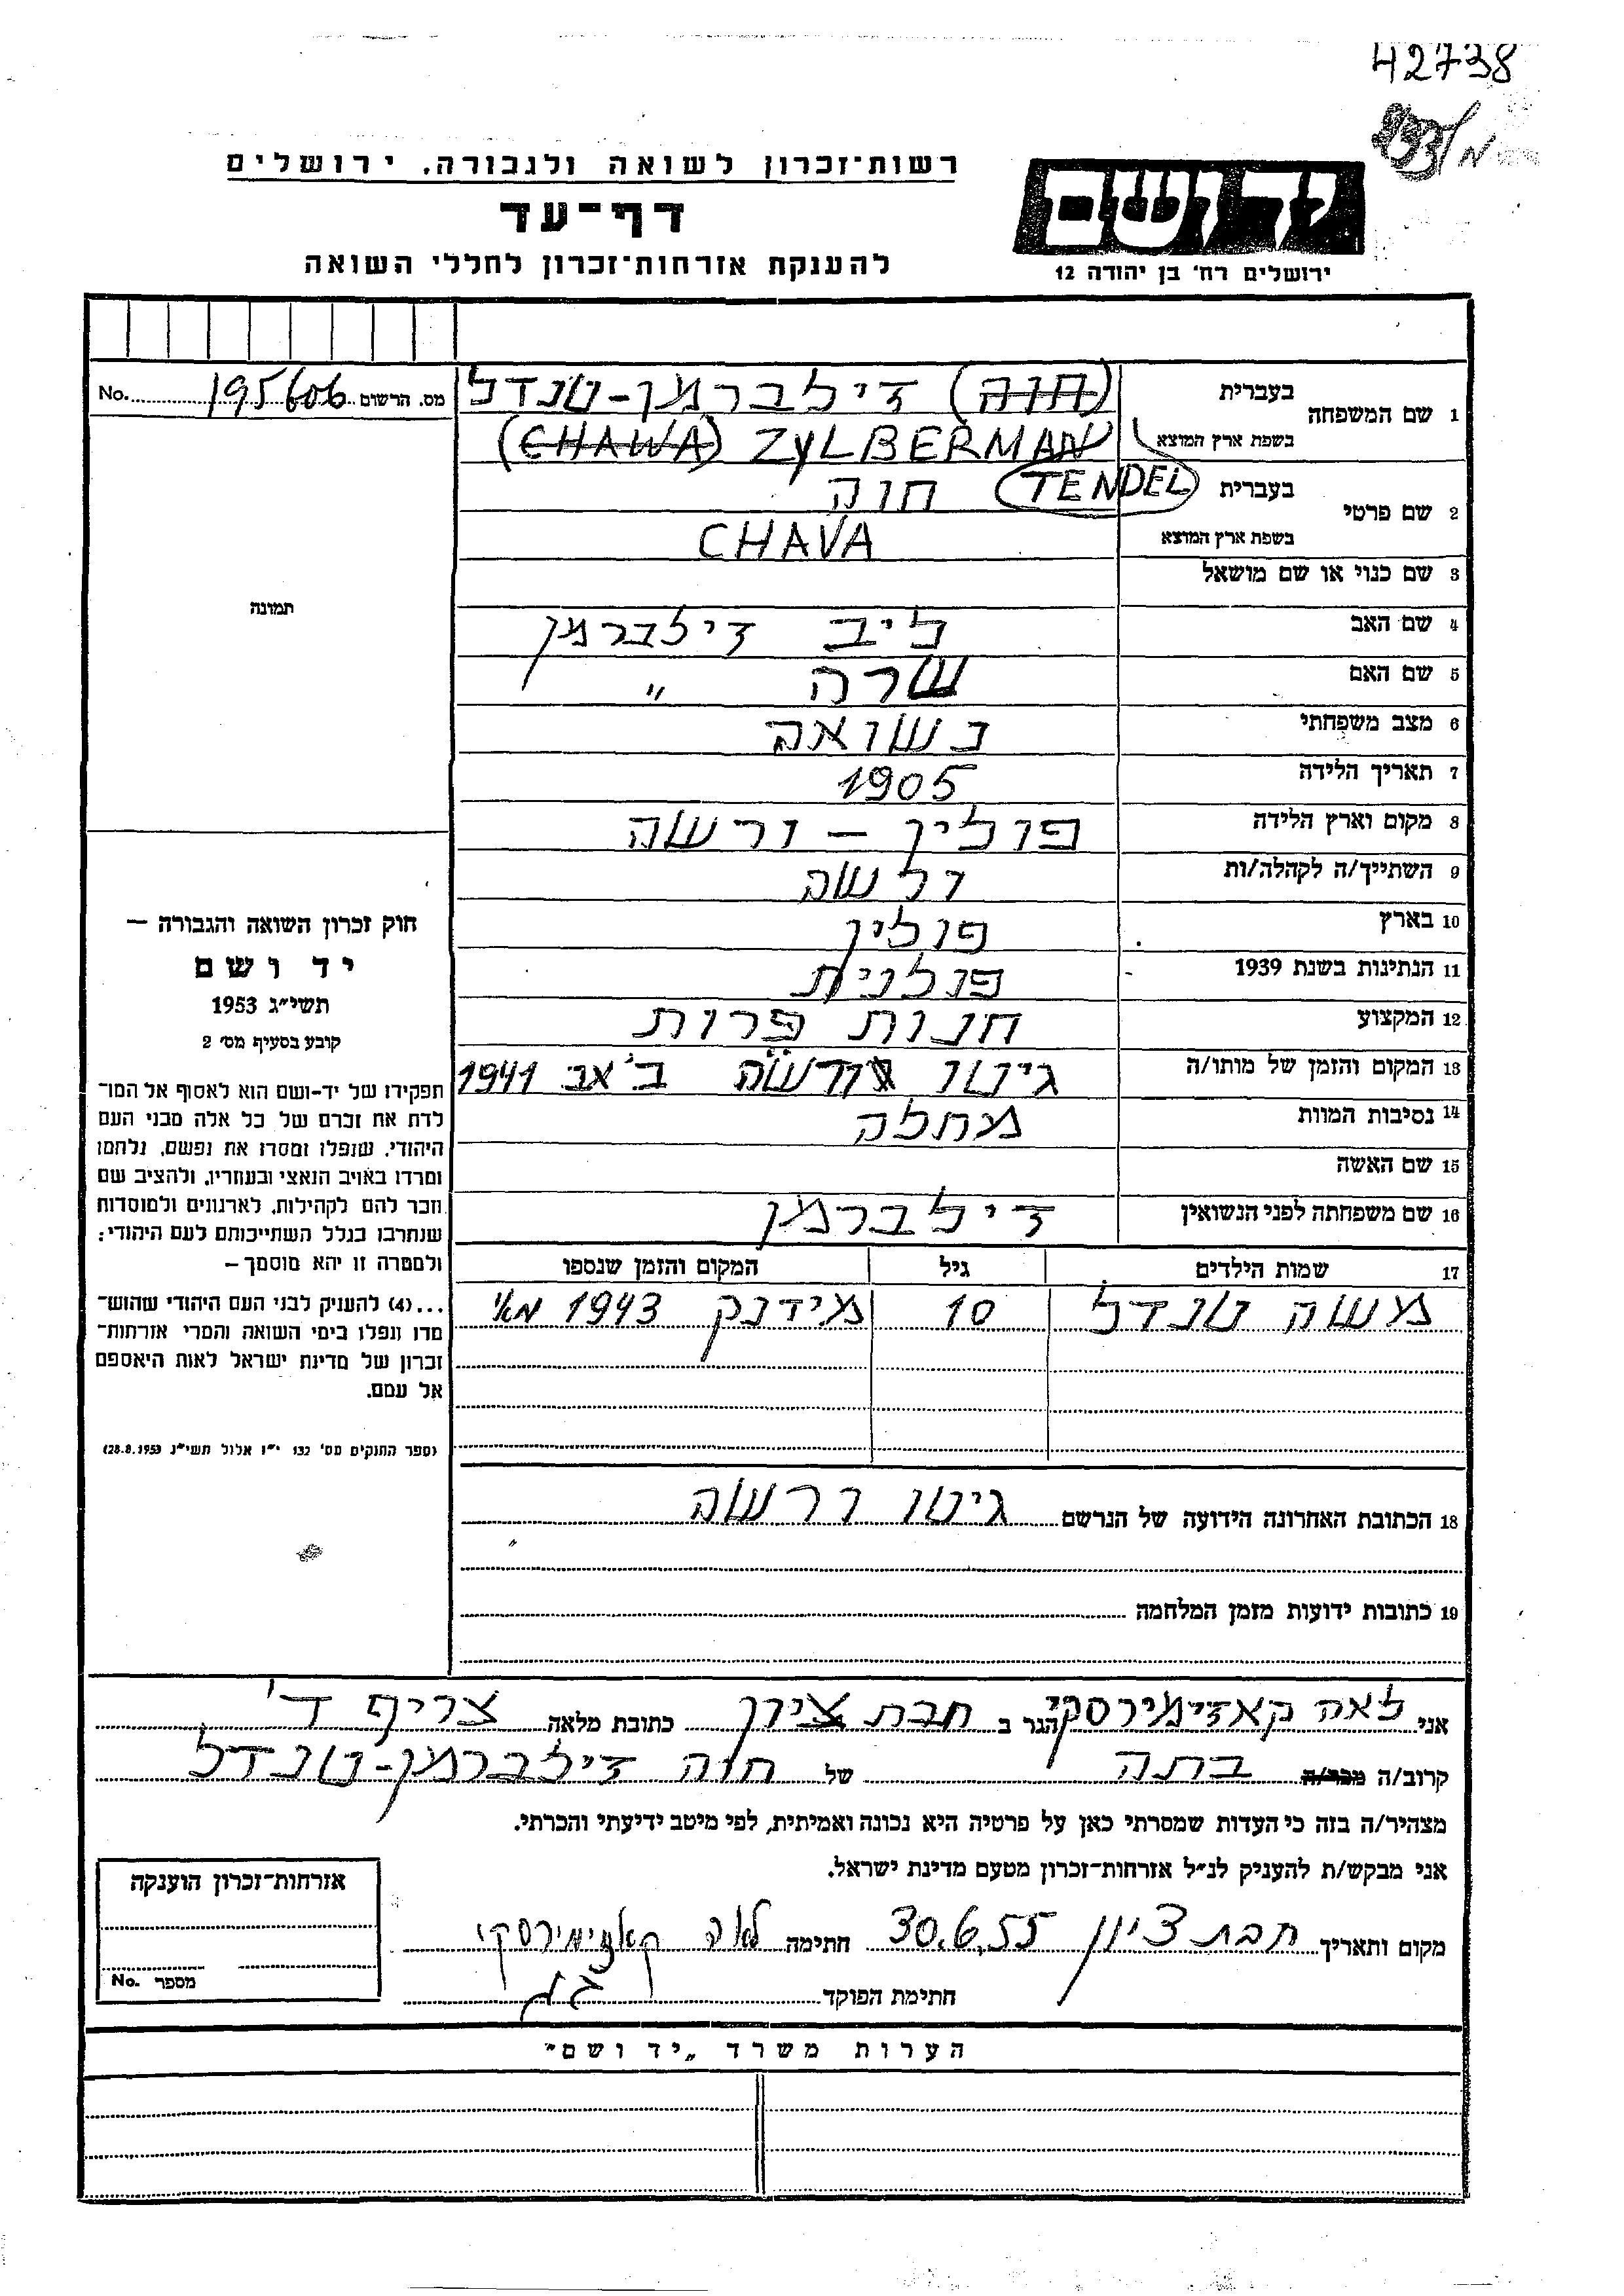 42738
רשות־זכרון לשואה ולגבורה. ירושלים
דף־עד
להענקת אזרחות־זכרון לחללי השואה
יד ושם
ירושלים רח' בן יהודה 12
מס. הרשום 195606 No.
1 שם המשפחה בעברית (חוה) זילברמן-טנדל
בשפת ארץ המוצא (CHAWA) ZYLBERMAN
(TENDEL)
2 שם פרטי בעברית חוה
בשפת ארץ המוצא CHAVA
3 שם כנוי או שם מושאל
4 שם האב ליב זילברמן
5 שם האם שרה "
6 מצב משפחתי נשואה
7 תאריך הלידה 1905
8 מקום וארץ הלידה פולין – ורשה
9 השתייך/ה לקהלה/ות ורשה
10 בארץ פולין
11 הנתינות בשנת 1939 פולנית
12 המקצוע חנות פרות
13 המקום והזמן של מותו/ה גיטו ורשה ב' אב 1941
14 נסיבות המוות מחלה
15 שם האשה
16 שם משפחתה לפני הנשואין זילברמן
17 שמות הילדים גיל המקום והזמן שנספו
משה טנדל 10 מידנק 1943 מאי
18 הכתובת האחרונה הידועה של הנרשם גיטו ורשה
19 כתובות ידועות מזמן המלחמה
תמונה
חוק זכרון השואה והגבורה –
יד ושם
תשי"ג 1953
קובע בסעיף מס' 2
תפקידו של יד-ושם הוא לאסוף אל המו־
לדת את זכרם של כל אלה מבני העם
היהודי, שנפלו ומסרו את נפשם, נלחמו
ומרדו באויב הנאצי ובעוזריו, ולהציב שם
וזכר להם לקהילות, לארגונים ולמוסדות
שנחרבו בגלל השתייכותם לעם היהודי;
ולמטרה זו יהא מוסמך –
...(4) להעניק לבני העם היהודי שהוש־
מדו ונפלו בימי השואה והמרי אזרחות־
זכרון של מדינת ישראל לאות היאספם
אל עמם.
(ספר החוקים מס' 132 י"ז אלול תשי"ג 28.8.1953)
אני לאה קאזימירסקי הגר ב חבת ציון כתובת מלאה צריף ד'
קרוב/ה מכר/ה בתה של חוה זילברמן-טנדל
מצהיר/ה בזה כי העדות שמסרתי כאן על פרטיה היא נכונה ואמיתית, לפי מיטב ידיעתי והכרתי.
אני מבקש/ת להעניק לנ"ל אזרחות־זכרון מטעם מדינת ישראל.
מקום ותאריך חבת ציון 30.6.55 חתימה לאה קאזימירסקי
חתימת הפוקד
אזרחות־זכרון הוענקה
מספר No.
הערות משרד "יד ושם"